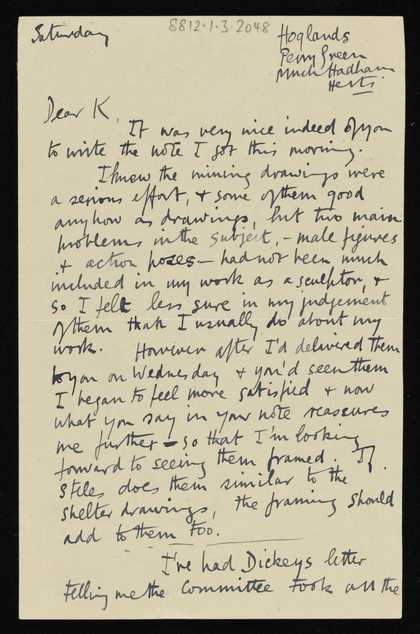 8812.1.3.2048
Saturday
Hoglands
Perry Green
Much Hadham
Herts
Dear K,
It was very nice indeed of you
to write the note I got this morning.
I knew the mining drawings were
a serious effort, & some of them good
anyhow as drawings, but two main
problems in the subject, – male figures
& action poses – had not been much
included in my work as a sculptor, &
so I felt less sure in my judgement
of them than I usually do about my
work. However after I'd delivered them
to you on Wednesday & you'd seen them
I began to feel more satisfied & now
what you say in your note reassures
me further – so that I'm looking
forward to seeing them framed. If
Stiles does them similar to the
shelter drawings, the framing should
add to them too.
I've had Dickeys letter
telling me the Committee took all the